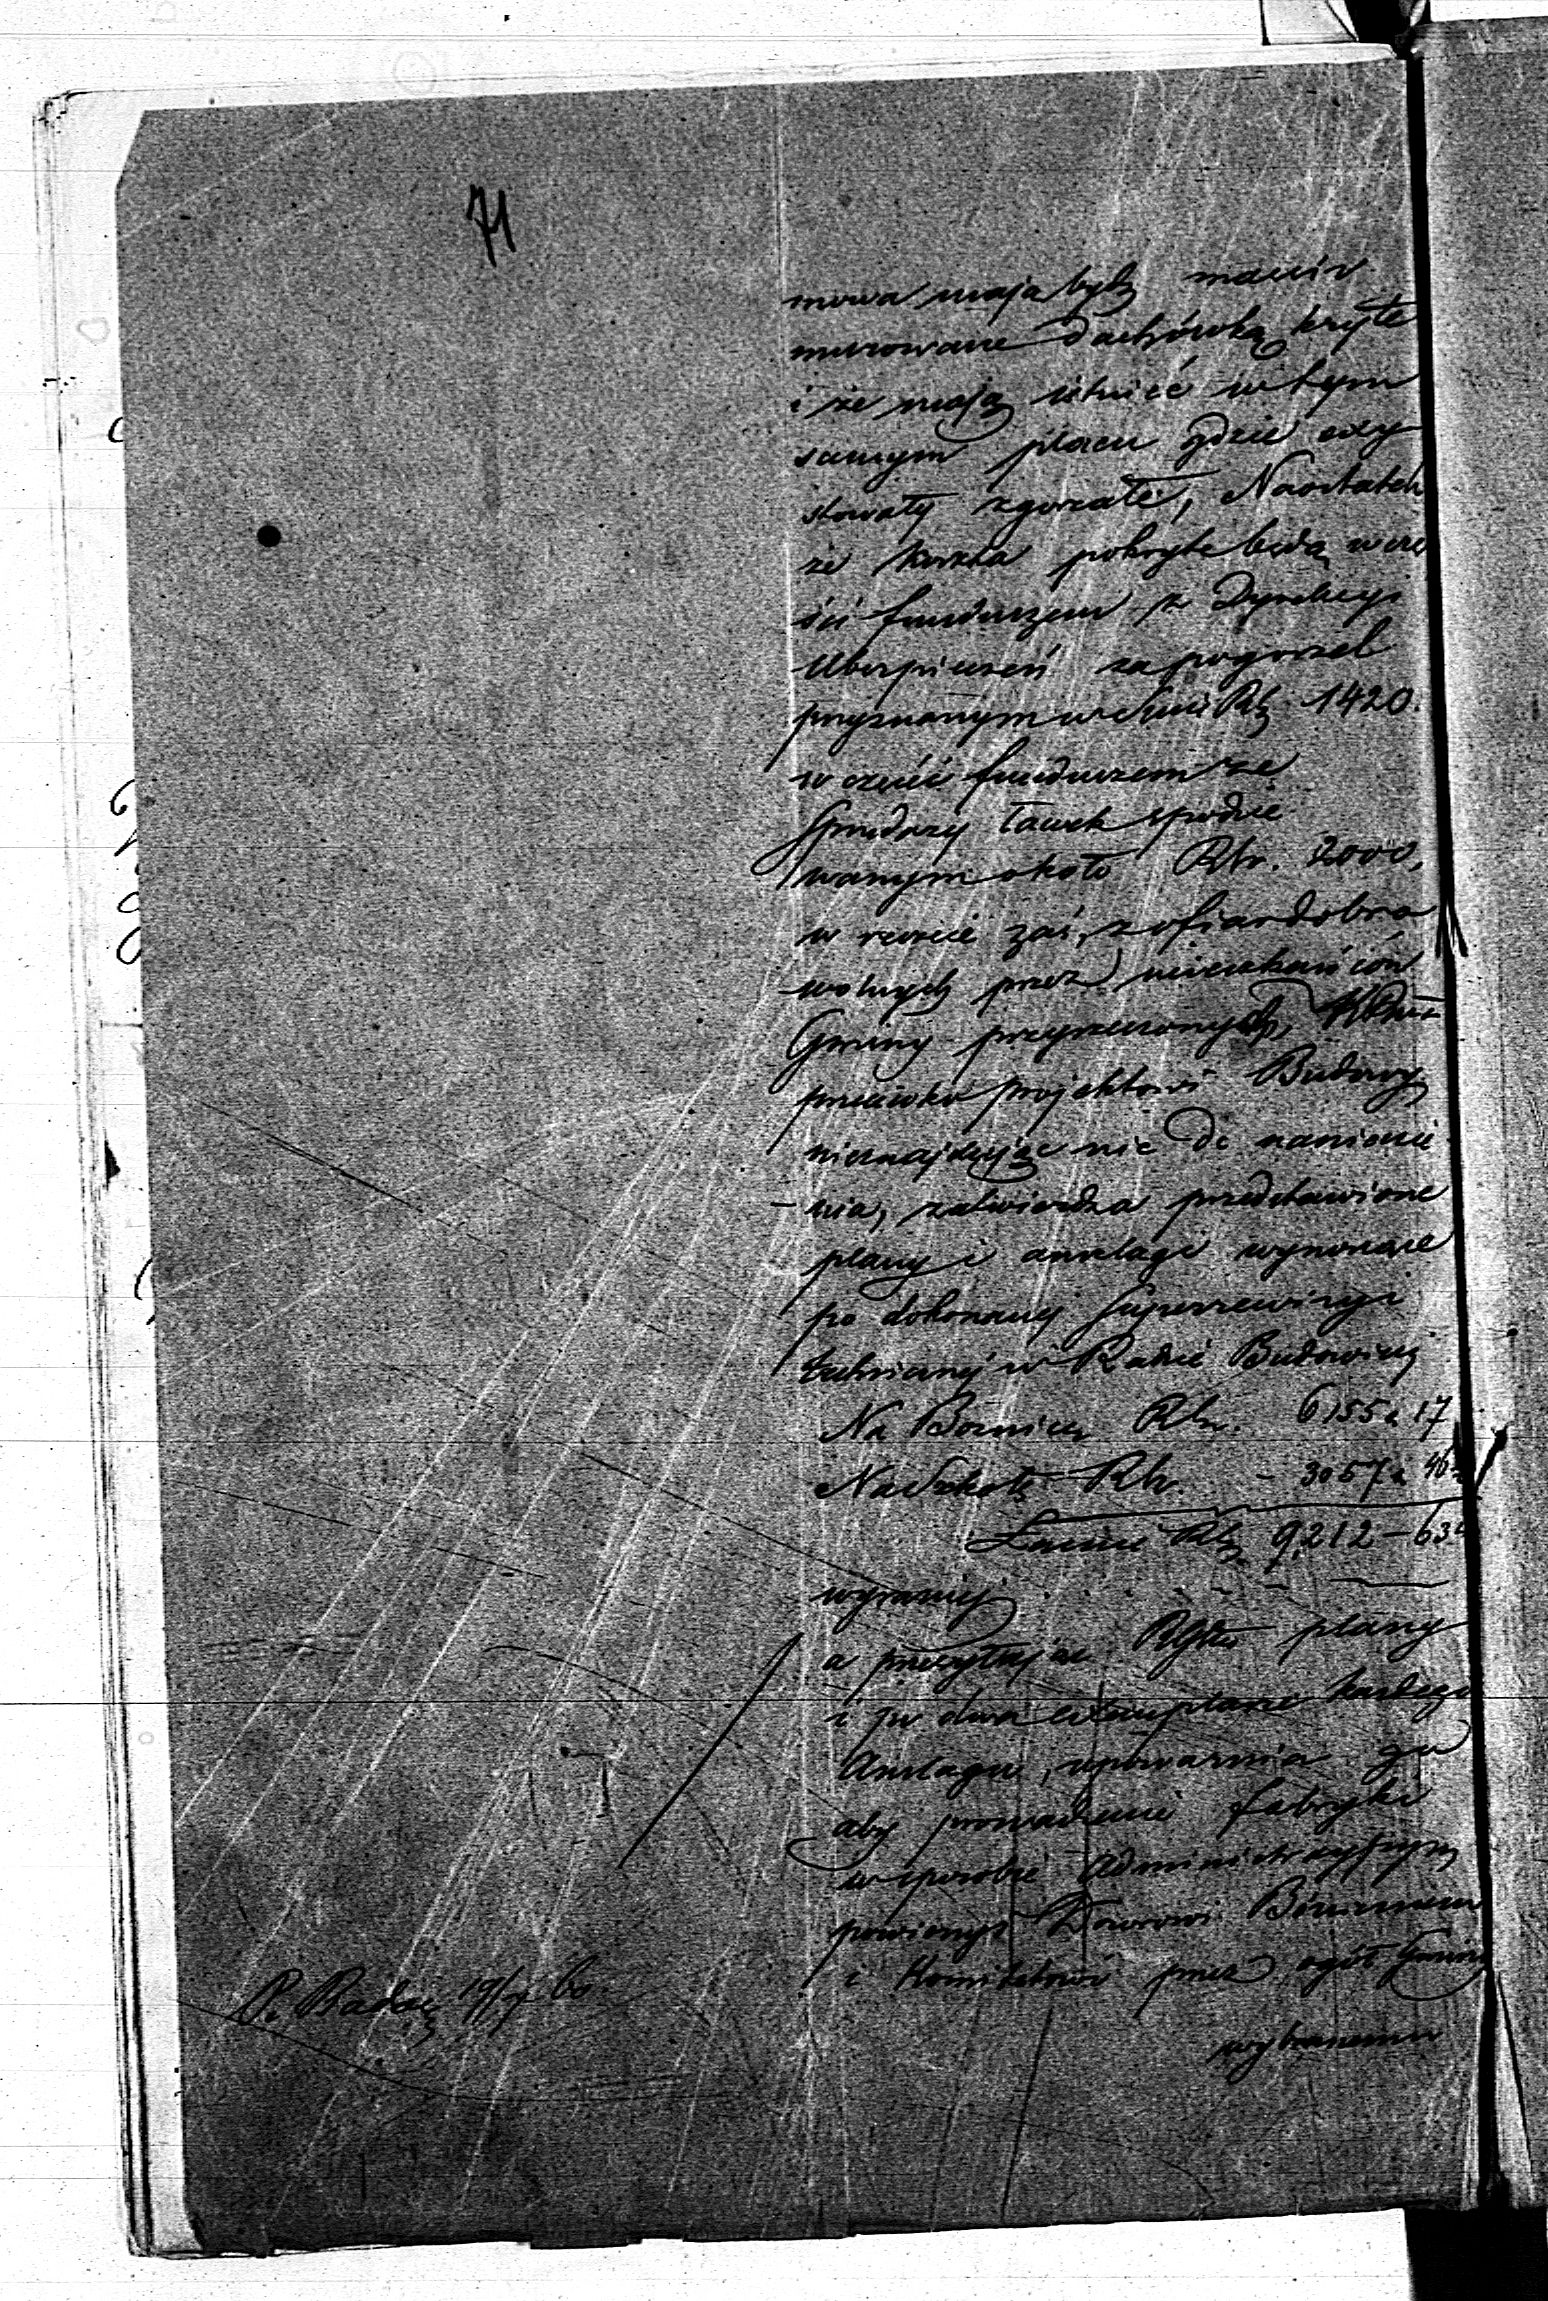 71
mowa mają bydź massiv
murowane dachówką kryte
i że mają istnieć w tym
samym placu gdzie exy-
stowały zgorzałe, Naostatek
że koszta pokryte będą w czę
ści funduszem z Dyrekcyi
Ubezpieczeń za pogorzel
przyznanym w summie Rsr 1420.
w części funduszem ze
Sprzedaży ławek spodzie
wanym około Rsr. 2000,
w reszcie zaś, z ofiar dobro
wolnych przez mieszkańców
Gminy przyrzeczonych,
przeciwko projektowi Budowy
nieznajdując nic do nadmienie
-nia, zatwierdza przedstawione
plany i anszlagi wynoszące
po dokonanej superrewizyi
technicznej w Radzie Budowniczej
Na Bóżnicę Rsr. 6155 k 17
Na Szkołę Rsr. - 3057 k 46½
Łącznie Rsr 9,212 - 63½
wyraźniej
a przesyłając Rządowi plany
i po dwa exemplarze każdego
Anszlagu, upoważnia go
aby prowadzenie fabryki
w sposobie Administracyjnym
powierzył Dozorowi Bóżniczemu
i Komitetowi przez ogół Gminy
wybranemu
R. Radcę 19/7 60